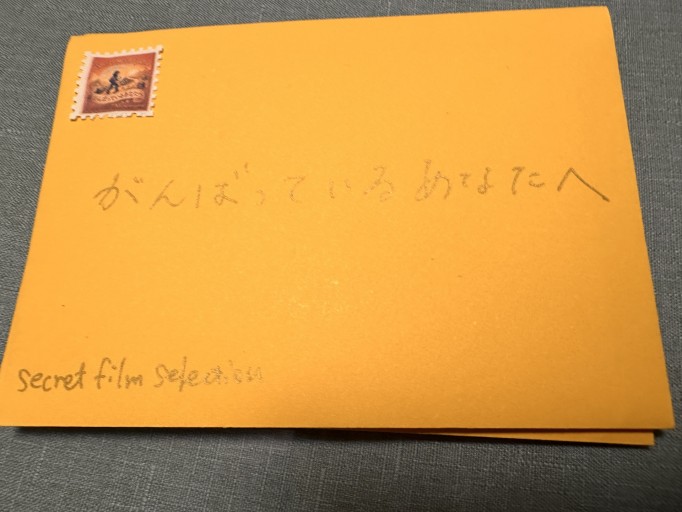 がんばっているあなたへ
secret film selection